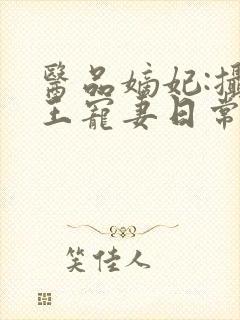 醫品嫡妃:攝
王寵妻日常
笑佳人